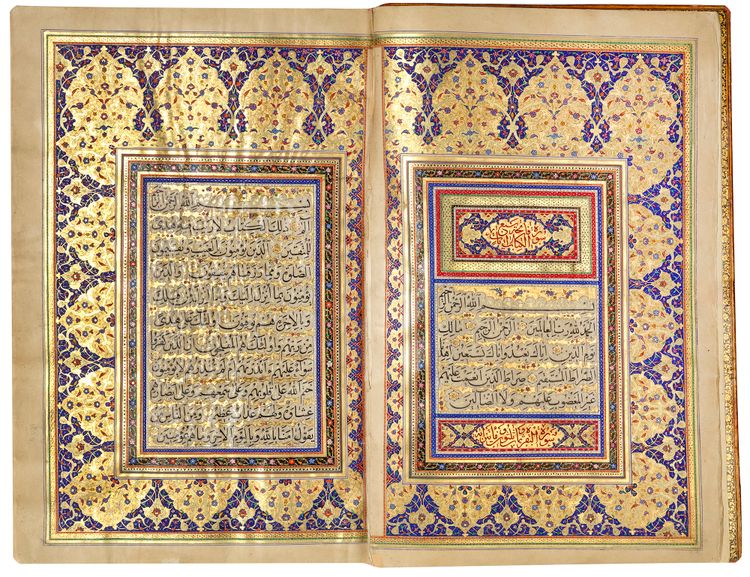 بسم الله الرحمن الرحيم
الحمد لله رب العالمين الرحمن الرحيم مالك
يوم الدين اياك نعبد واياك نستعين اهدنا
الصراط المستقيم صراط الذين انعمت عليهم
غير المغضوب عليهم ولا الضالين
سورة البقرة
بسم الله الرحمن الرحيم
الم ذلك الكتاب لا ريب فيه هدى
للمتقين الذين يؤمنون بالغيب ويقيمون
الصلوة ومما رزقناهم ينفقون والذين
يؤمنون بما انزل اليك وما انزل من قبلك
وبالاخرة هم يوقنون اولئك على هدى
من ربهم واولئك هم المفلحون ان الذين كفروا
سواء عليهم ءانذرتهم ام لم تنذرهم لا يؤمنون
ختم الله على قلوبهم وعلى سمعهم وعلى ابصارهم
غشاوة ولهم عذاب عظيم ومن الناس من
يقول امنا بالله وباليوم الاخر وما هم بمؤمنين